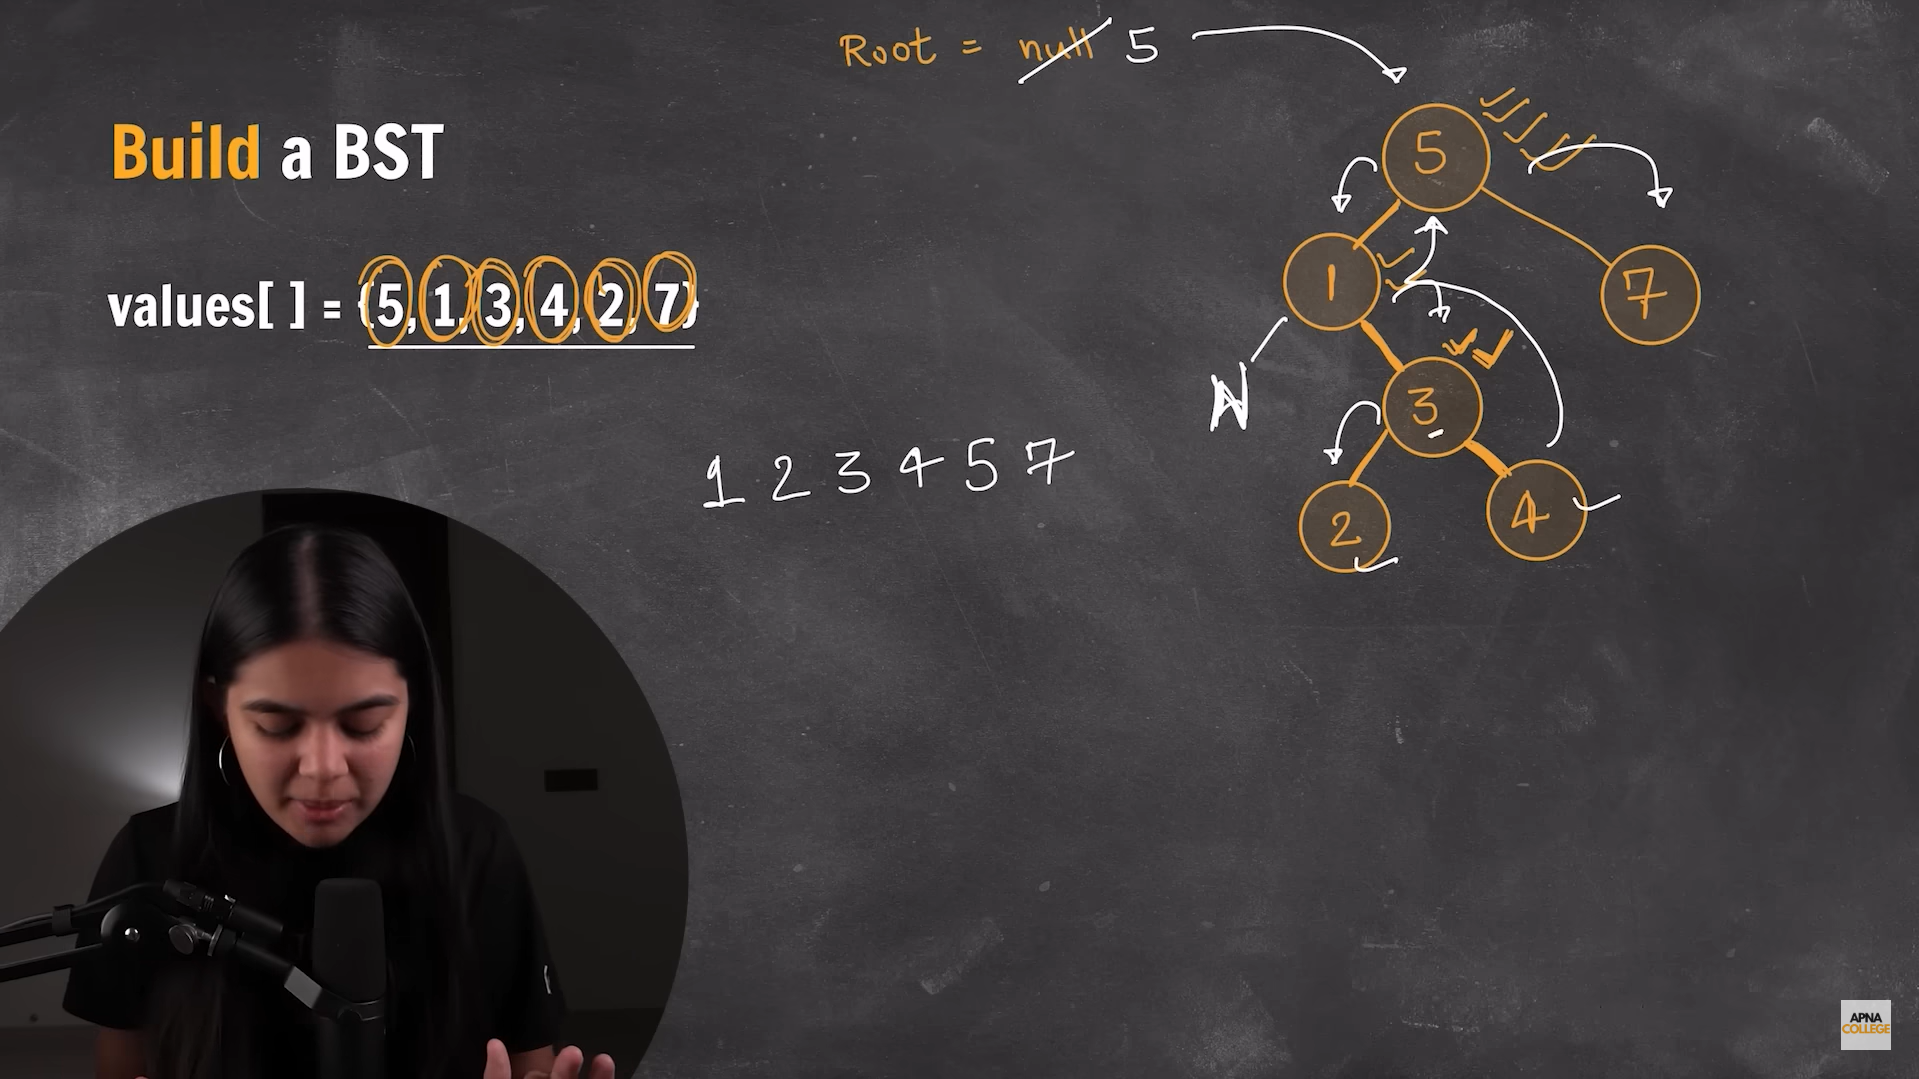 Root = null 5
Build a BST
values[ ] = {5, 1, 3, 4, 2, 7}
1 2 3 4 5 7
5
1
7
N
3
2
4
APNA
COLLEGE